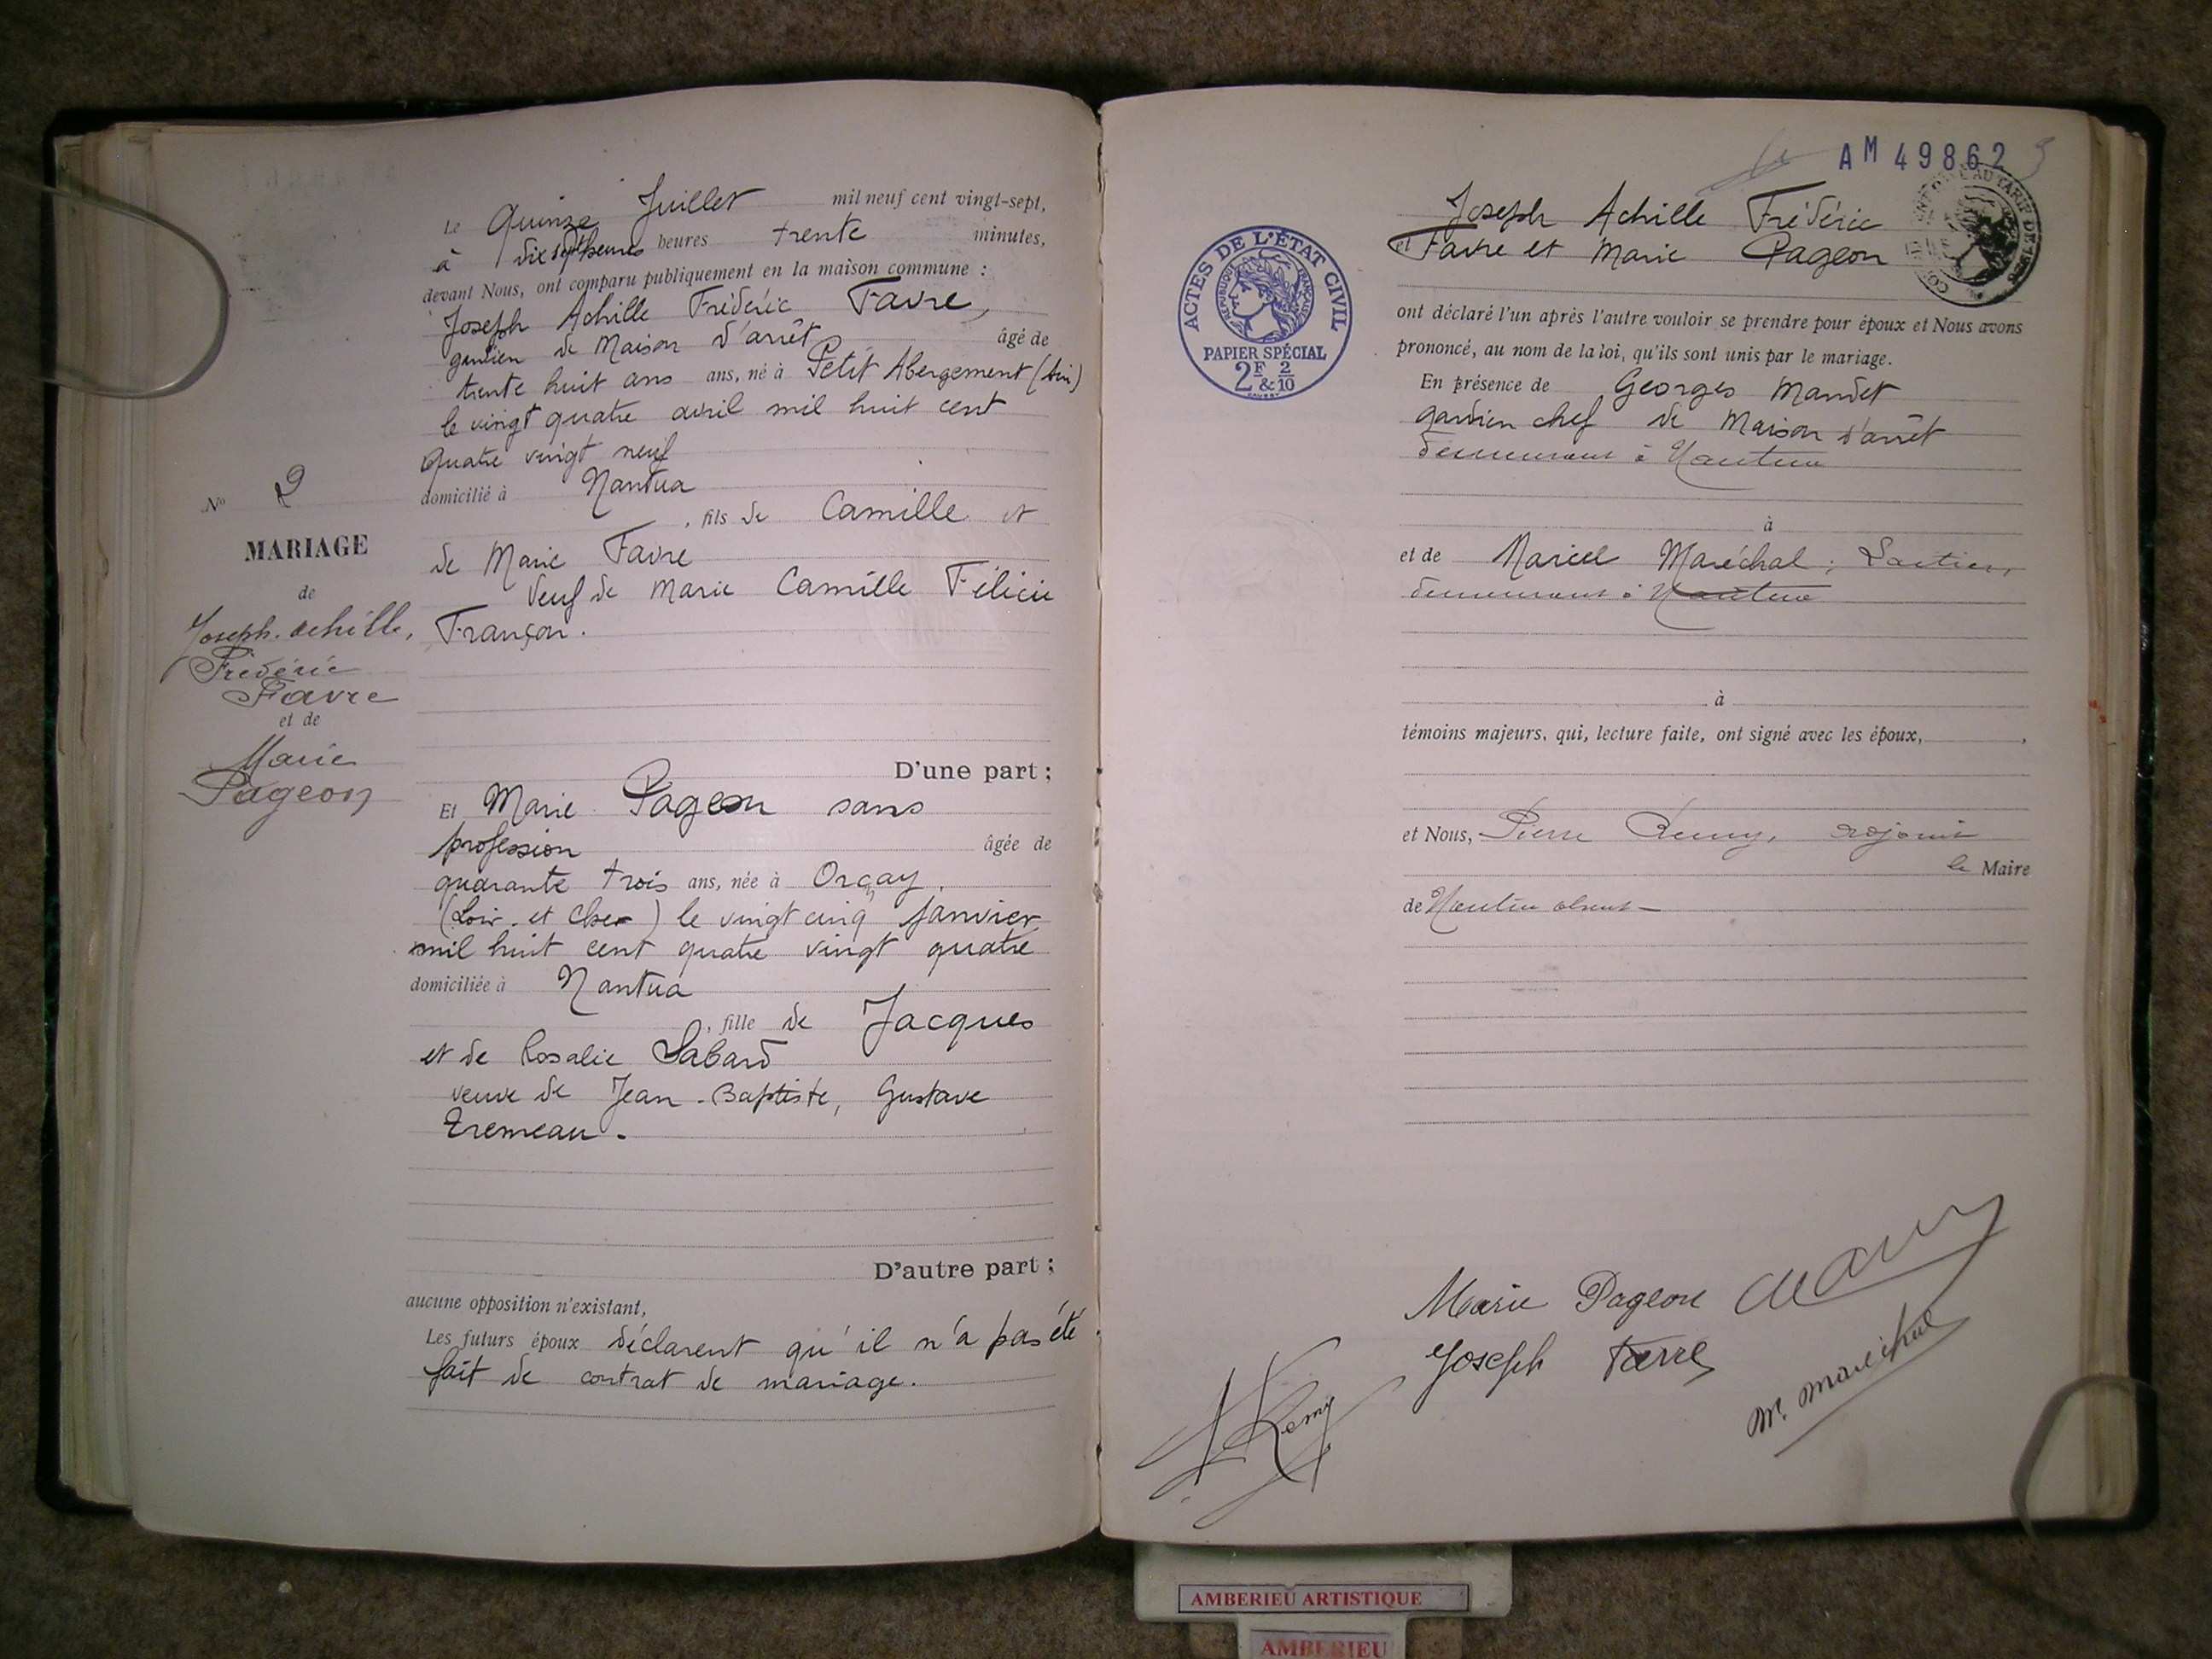 Le Quinze Juillet mil neuf cent vingt-sept,
à dix sept heures heures trente minutes,
devant Nous, ont comparu publiquement en la maison commune :
Joseph Achille Frédéric Favre,
gardien de Maison d'arrêt âgé de
trente huit ans ans, né à Petit Abergement (Ain)
le vingt quatre avril mil huit cent
quatre vingt neuf
domicilié à Nantua
, fils de Camille et
de Marie Favre
veuf de Marie Camille Félicie
Françon.
D'une part ;
Et Marie Pageon sans
profession âgée de
quarante trois ans, née à Orçay
(Loir-et Cher) le vingt cinq janvier
mil huit cent quatre vingt quatre
domiciliée à Nantua
, fille de Jacques
et de Rosalie Sabard
veuve de Jean-Baptiste, Gustave
Tremeau.
D'autre part ;
aucune opposition n'existant,
Les futurs époux déclarent qu'il n'a pas été
fait de contrat de mariage.
N° 2
MARIAGE
de
Joseph. Achille,
Frédéric
Favre
et de
Marie
Pageon
AM 49862
ACTES DE L'ÉTAT CIVIL
RÉPUBLIQUE FRANÇAISE
PAPIER SPÉCIAL
2F 2/10
&
AU TARIF DE
Joseph Achille Frédéric
et Favre et Marie Pageon
ont déclaré l'un après l'autre vouloir se prendre pour époux et Nous avons
prononcé, au nom de la loi, qu'ils sont unis par le mariage.
En présence de Georges Mandet
gardien chef de Maison d'arrêt
demeurant à Nantua
à
et de Marcel Maréchal,
demeurant à Nantua
à
témoins majeurs, qui, lecture faite, ont signé avec les époux, ,
et Nous, Pierre Remy, adjoint
le Maire
de Nantua absent
Marie Pageon
Joseph Favre
M. Marechal
Remy
AMBERIEU ARTISTIQUE
AMBERIEU